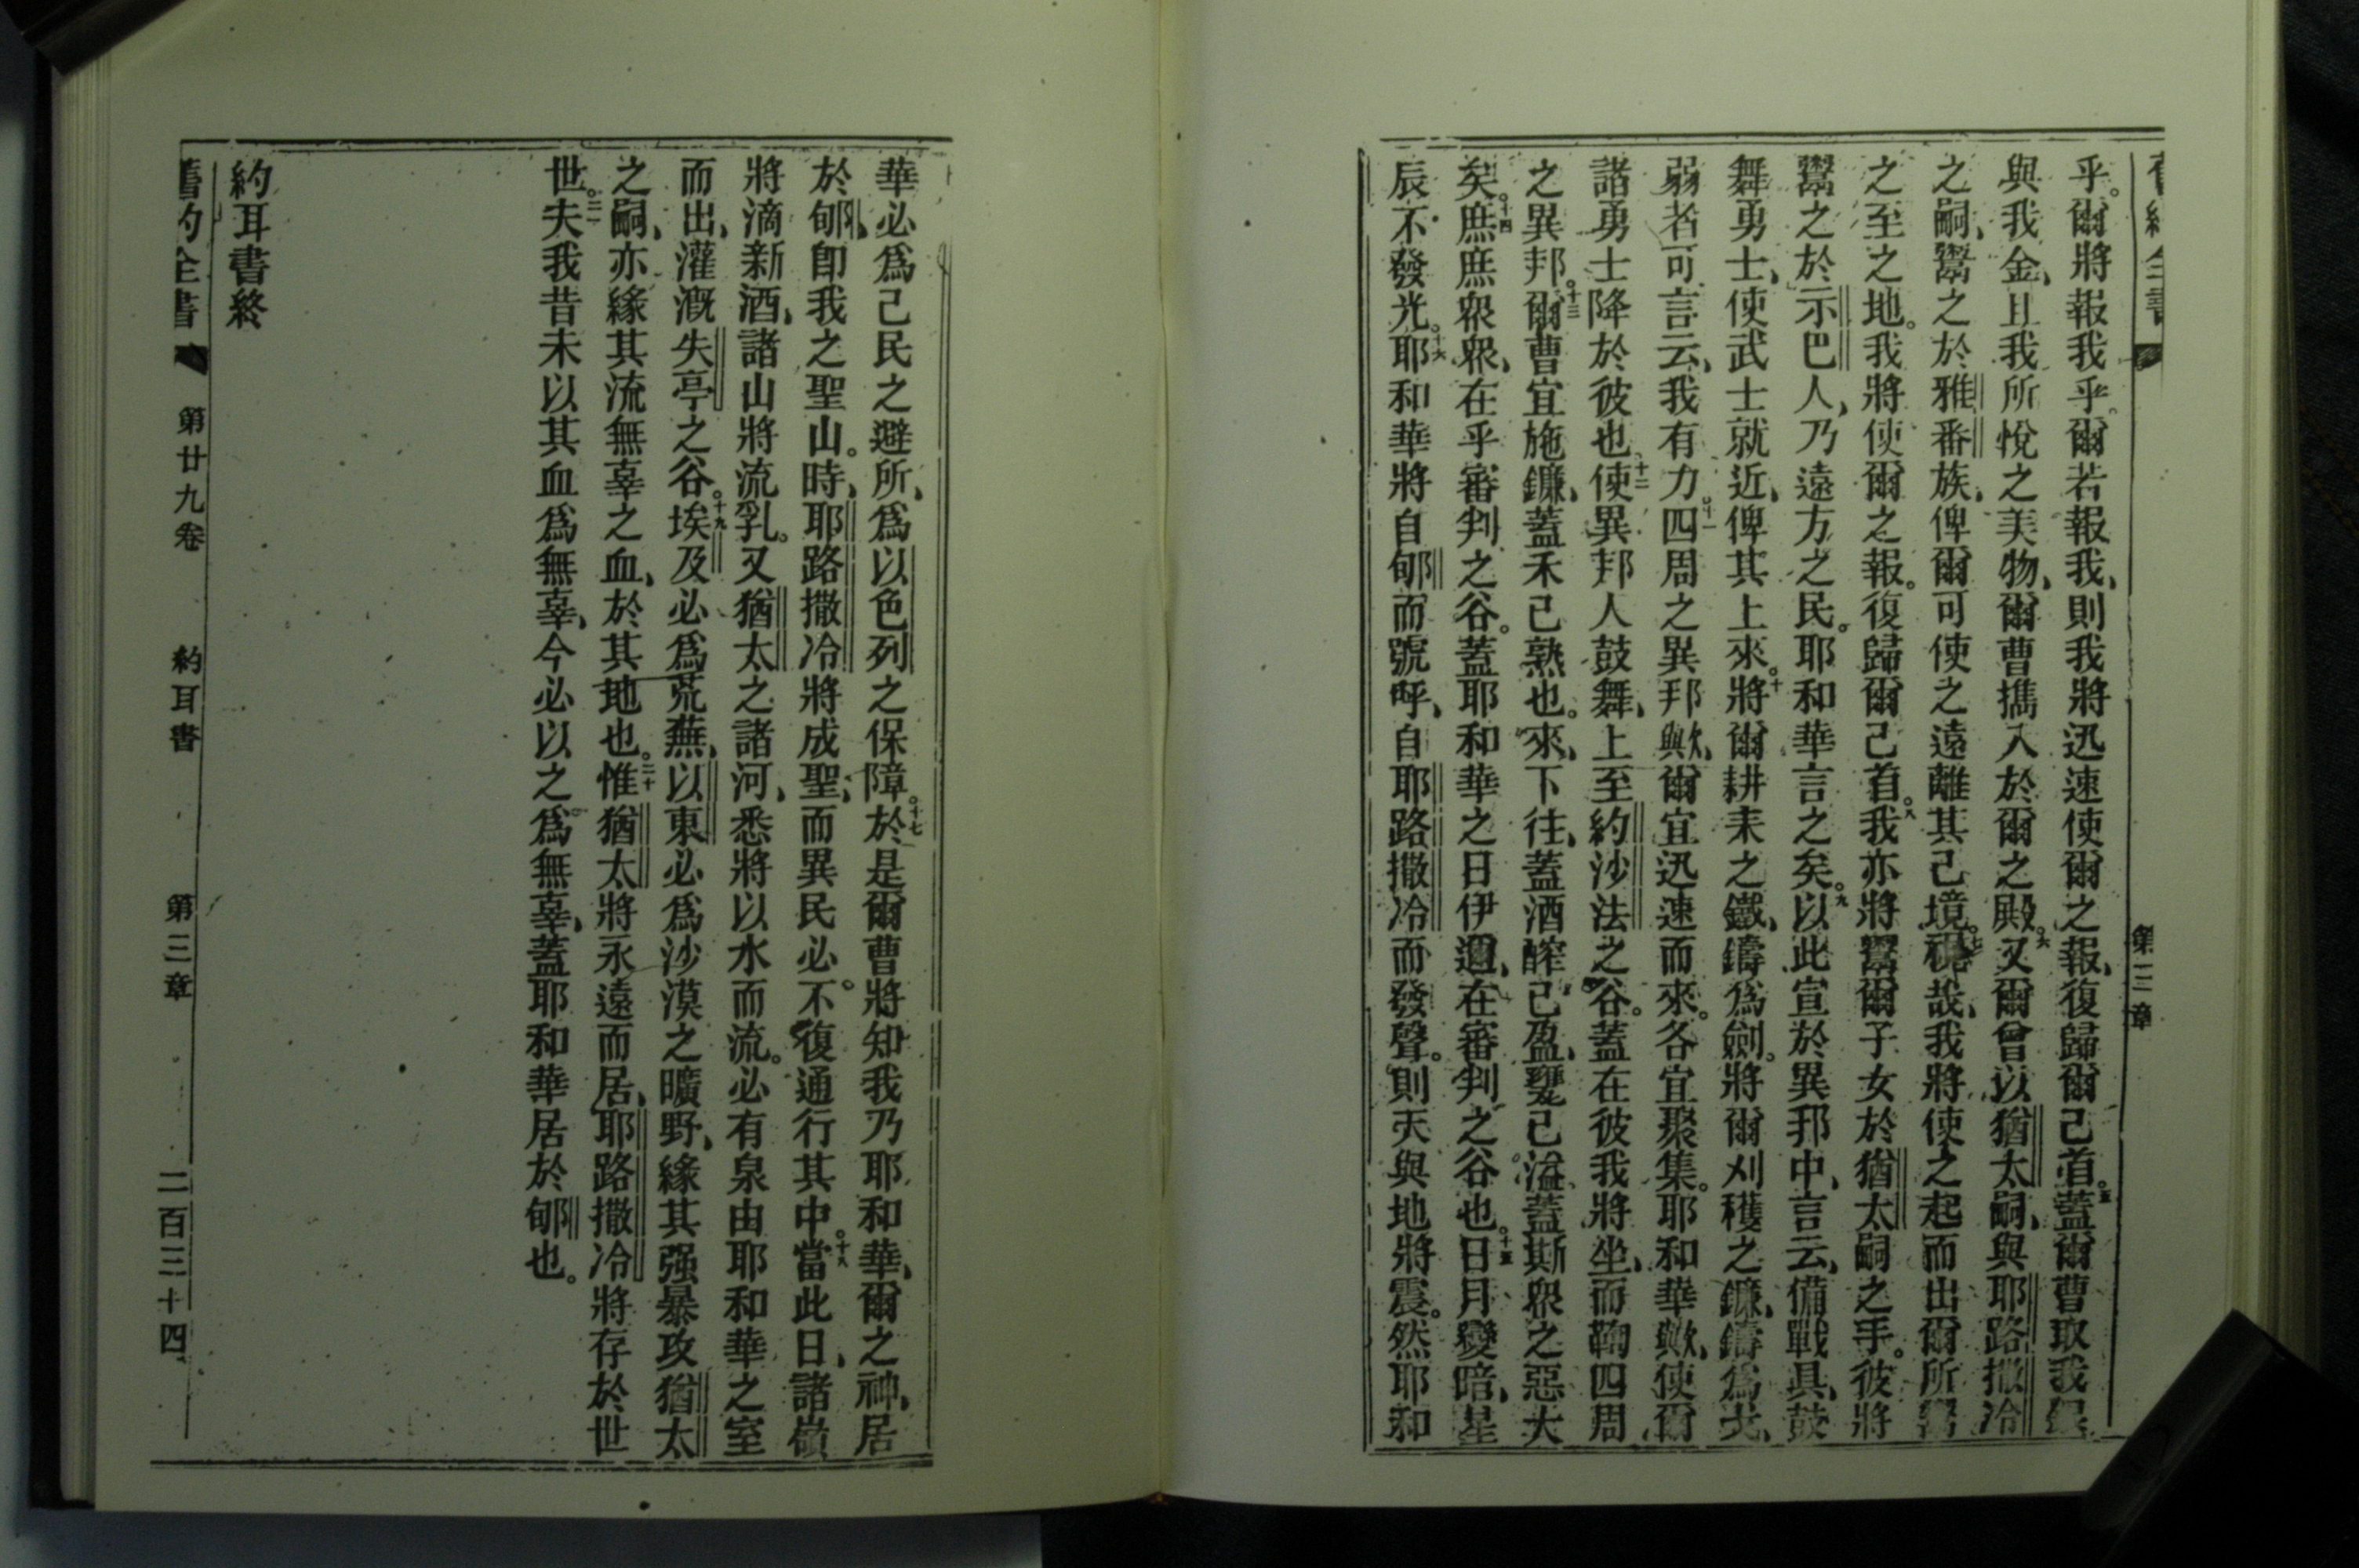 舊約全書 第三章
乎。爾將報我乎。爾若報我、則我將迅速使爾之報、復歸爾己首。五蓋爾曹取我銀
與我金、且我所悅之美物、爾曹擕入於爾之殿。六又爾曾以猶太嗣、與耶路撒冷
之嗣、鬻之於雅番族、俾爾可使之遠離其己境。七視哉、我將使之起而出爾所鬻
之至之地。我將使爾之報。復歸爾己首。八我亦將鬻爾子女於猶太嗣之手。彼將
鬻之於示巴人、乃遠方之民。耶和華言之矣。九以此宣於異邦中、言云、備戰具、鼓
舞勇士、使武士就近、俾其上來。十將爾耕耒之鐵、鑄爲劍。將爾刈穫之鐮、鑄爲戈、
弱者可言云、我有力。十一四周之異邦歟、爾宜迅速而來。各宜聚集。耶和華歟、使爾
諸勇士降於彼也。十二使異邦人鼓舞、上至約沙法之谷。蓋在彼我將坐、而鞫四周
之異邦。十三爾曹宜施鐮、蓋禾已熟也。來、下往、蓋酒醡已盈、甕已溢、蓋斯衆之惡大
矣。十四庶庶衆衆、在乎審判之谷。蓋耶和華之日伊邇、在審判之谷也。十五日月變暗、星
辰不發光。十六耶和華將自郇而號呼、自耶路撒冷而發聲。則天與地將震。然耶和
華必爲己民之避所、爲以色列之保障。十七於是爾曹將知我乃耶和華、爾之神、居
於郇、卽我之聖山。時、耶路撒冷將成聖、而異民必不復通行其中。十八當此日、諸嶺
將滴新酒、諸山將流乳。又猶太之諸河、悉將以水而流。必有泉由耶和華之室
而出、灌漑失亭之谷。十九埃及必爲荒蕪、以東必爲沙漠之曠野、緣其强暴攻猶太
之嗣、亦緣其流無辜之血、於其地也。二十惟猶太將永遠而居、耶路撒冷將存於世
世。二一夫我昔未以其血爲無辜、今必以之爲無辜、蓋耶和華居於郇也。
約耳書終
舊約全書 第廿九卷 約耳書 第三章 二百三十四